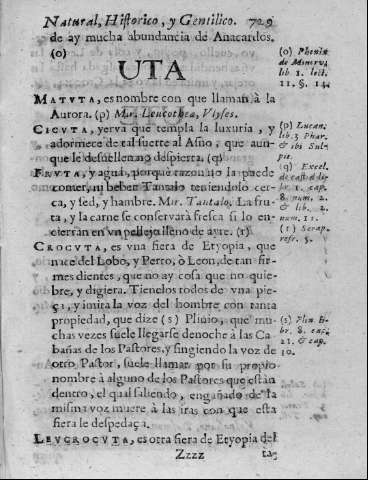 Natural, Historico, y Gentilico. 729
de ay mucha abundancia de Anacardos.
(o)
UTA
MATVTA, es nombre con que llaman à la
Aurora. (p) Mir. Leucothea, Vlyses.
CICVTA, yerva que templa la luxuria, y
adormece de tal suerte al Asno, que aun-
que le desuellen no despierta. (q)
FRVTA, y agua, porque razon no la puede
comer, ni beber Tantalo teniendolo cer-
ca, y sed, y hambre. Mir. Tantalo. La fru-
ta, y la carne se conservarà fresca si lo en-
cierran en vn pellejo lleno de ayre. (r)
CROCVTA, es vna fiera de Etyopia, que
nace del Lobo, y Perro, ò Leon, de tan fir-
mes dientes, que no ay cosa que no quie-
bre, y digiera. Tienelos todos de vna pie-
ça, y imita la voz del hombre con tanta
propiedad, que dize (s) Plinio, que mu-
chas vezes suele llegarse denoche à las Ca-
bañas de los Pastores, y fingiendo la voz de
otro Pastor, suele llamar por su propio
nombre à alguno de los Pastores que estàn
dentro, el qual saliendo, engañado de la
misma voz muere à las iras con que esta
fiera le despedaça.
LEVCROCVTA, es otra fiera de Etyopia del
Zzzz ta-
(o) Phenix
de Minerv.
lib. 1. lect.
11. §. 14.
(p) Lucan.
lib. 3 Phar.
& ibi Sul-
pic.
(q) Excel.
de cast. dis-
br. 1. cap.
8. num. 2.
& lib. 2.
num. 11.
(r) Scrap.
refr. 5.
(s) Plin. li-
br. 8. cap.
21. & cap.
30.